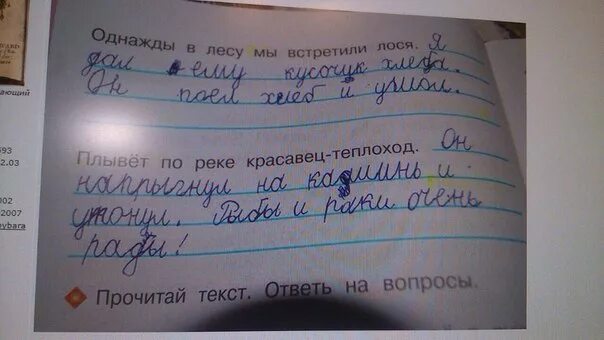 Однажды в лесу мы встретили лося. Я
дал ему кусочук хлеба.
Он поел хлеб и ушол.
Плывёт по реке красавец-теплоход. Он
напрыгнул на каминь и
утонул. Рыбы и раки очень
рады!
Прочитай текст. Ответь на вопросы.
ающий
593
2.03
002
2007
ybara